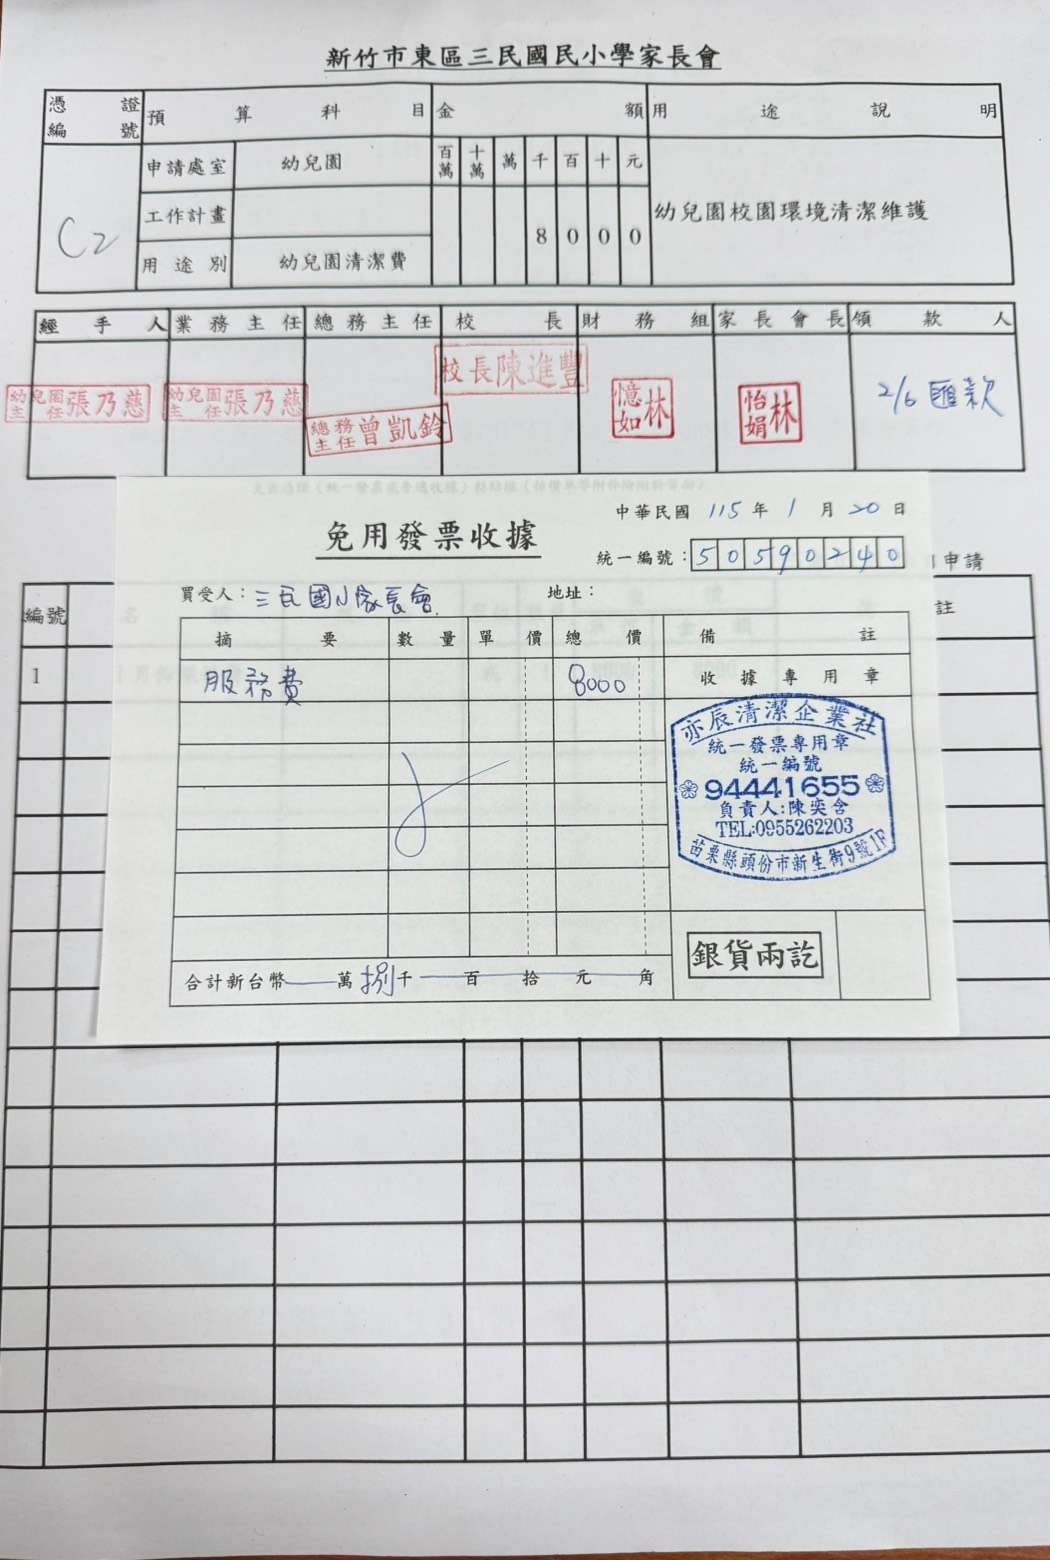 新竹市東區三民國民小學家長會
憑證編號 預算科目 金額 用途說明
申請處室 幼兒園 百萬 十萬 萬 千 百 十 元
C2 工作計畫 8 0 0 0 幼兒園校園環境清潔維護
用途別 幼兒園清潔費
經手人 業務主任 總務主任 校長 財務組 家長會長 領款人
幼兒園主任張乃慈 幼兒園主任張乃慈 總務主任曾凱鈴 校長陳進豐 林憶如 林怡娟 2/6 匯款
中華民國 115 年 1 月 20 日
免用發票收據
統一編號：50590240
申請
買受人：三民國小家長會 地址：
編號 註
摘要 數量 單價 總價 備註
1
服務費 8000 收據專用章
亦辰清潔企業社
統一發票專用章
統一編號
94441655
負責人:陳奕含
TEL:0955262203
苗栗縣頭份市新生街9號1F
銀貨兩訖
合計新台幣 萬 捌 千 百 拾 元 角